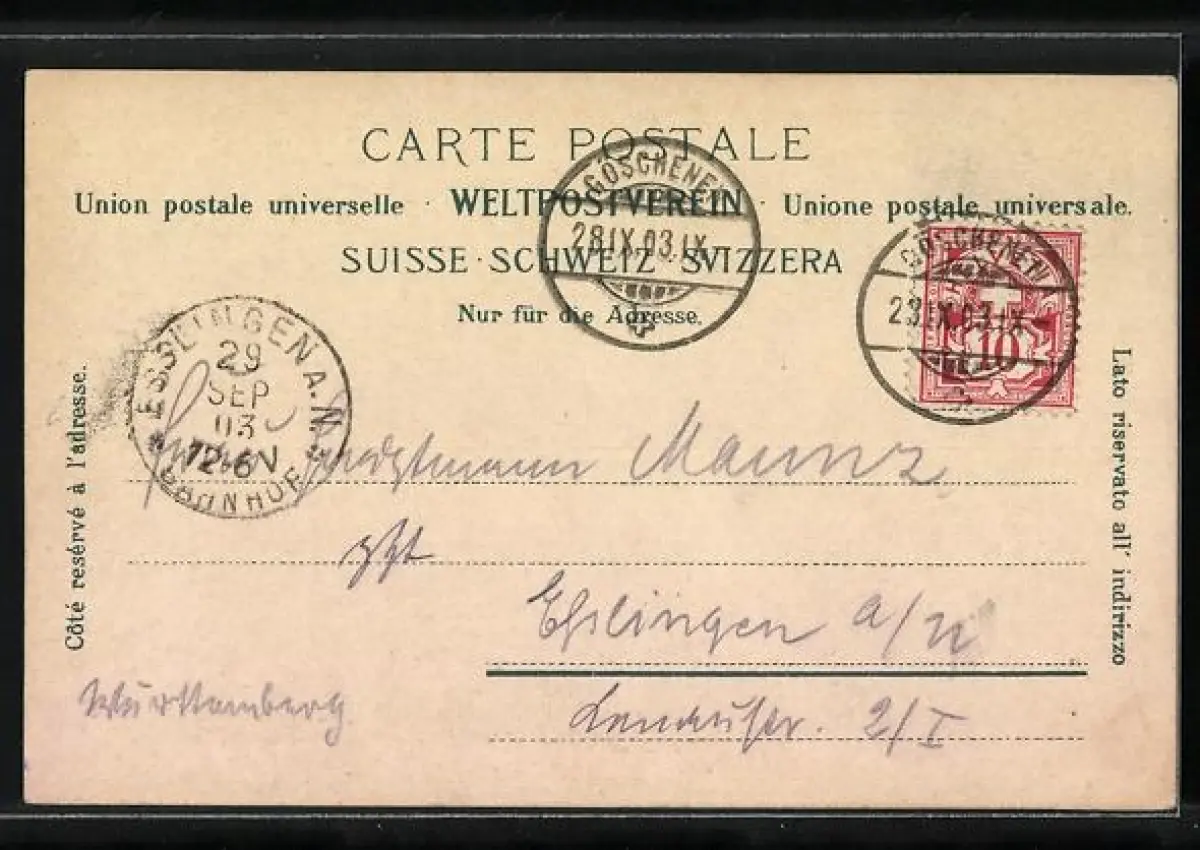 CARTE POSTALE
Union postale universelle · WELTPOSTVEREIN · Unione postale universale.
SUISSE · SCHWEIZ · SVIZZERA
Nur für die Adresse.
GÖSCHENEN
28.IX.03.IX-
GÖSCHENEN
28.IX.03.IX-
10
ESSLINGEN A.N.
29
SEP
03
12-6N
BAHNHOF
Côté resérvé à l'adresse.
Lato riservato all' indirizzo
Maunz
Eßlingen a/N
Württemberg
2/I